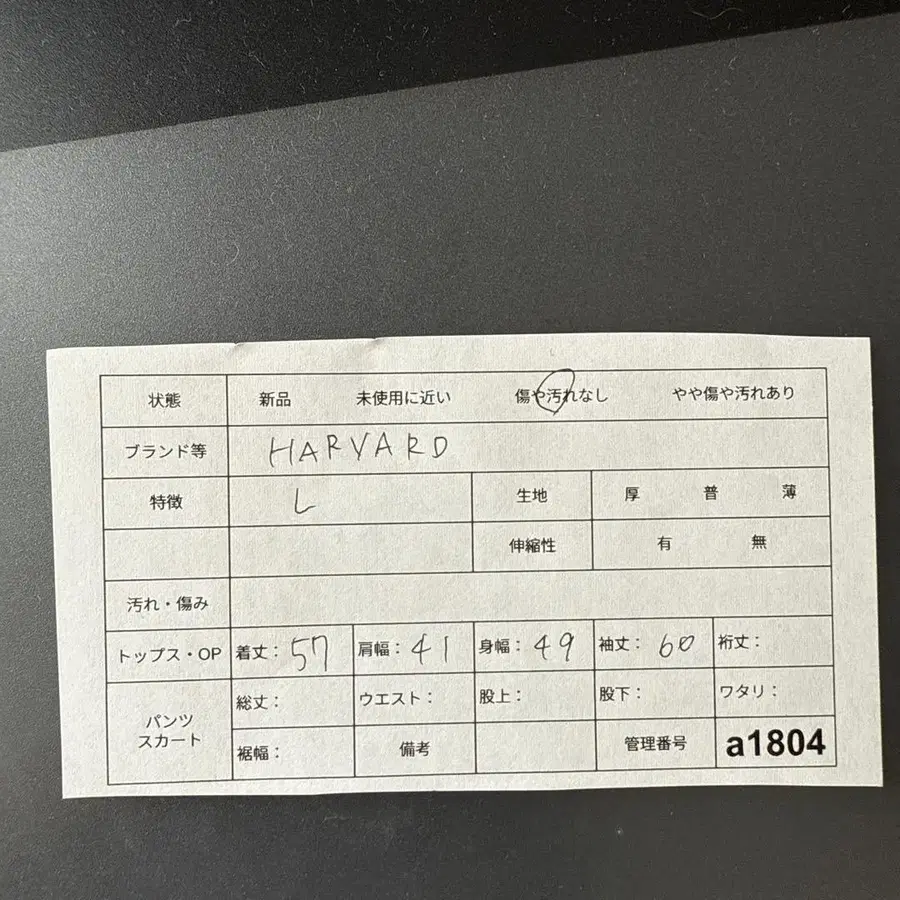 状態 新品 未使用に近い 傷や汚れなし やや傷や汚れあり
ブランド等 HARVARD
特徴 L 生地 厚 普 薄
伸縮性 有 無
汚れ・傷み
トップス・OP 着丈：57 肩幅：41 身幅：49 袖丈：60 裄丈：
パンツ スカート 総丈： ウエスト： 股上： 股下： ワタリ：
裾幅： 備考 管理番号 a1804